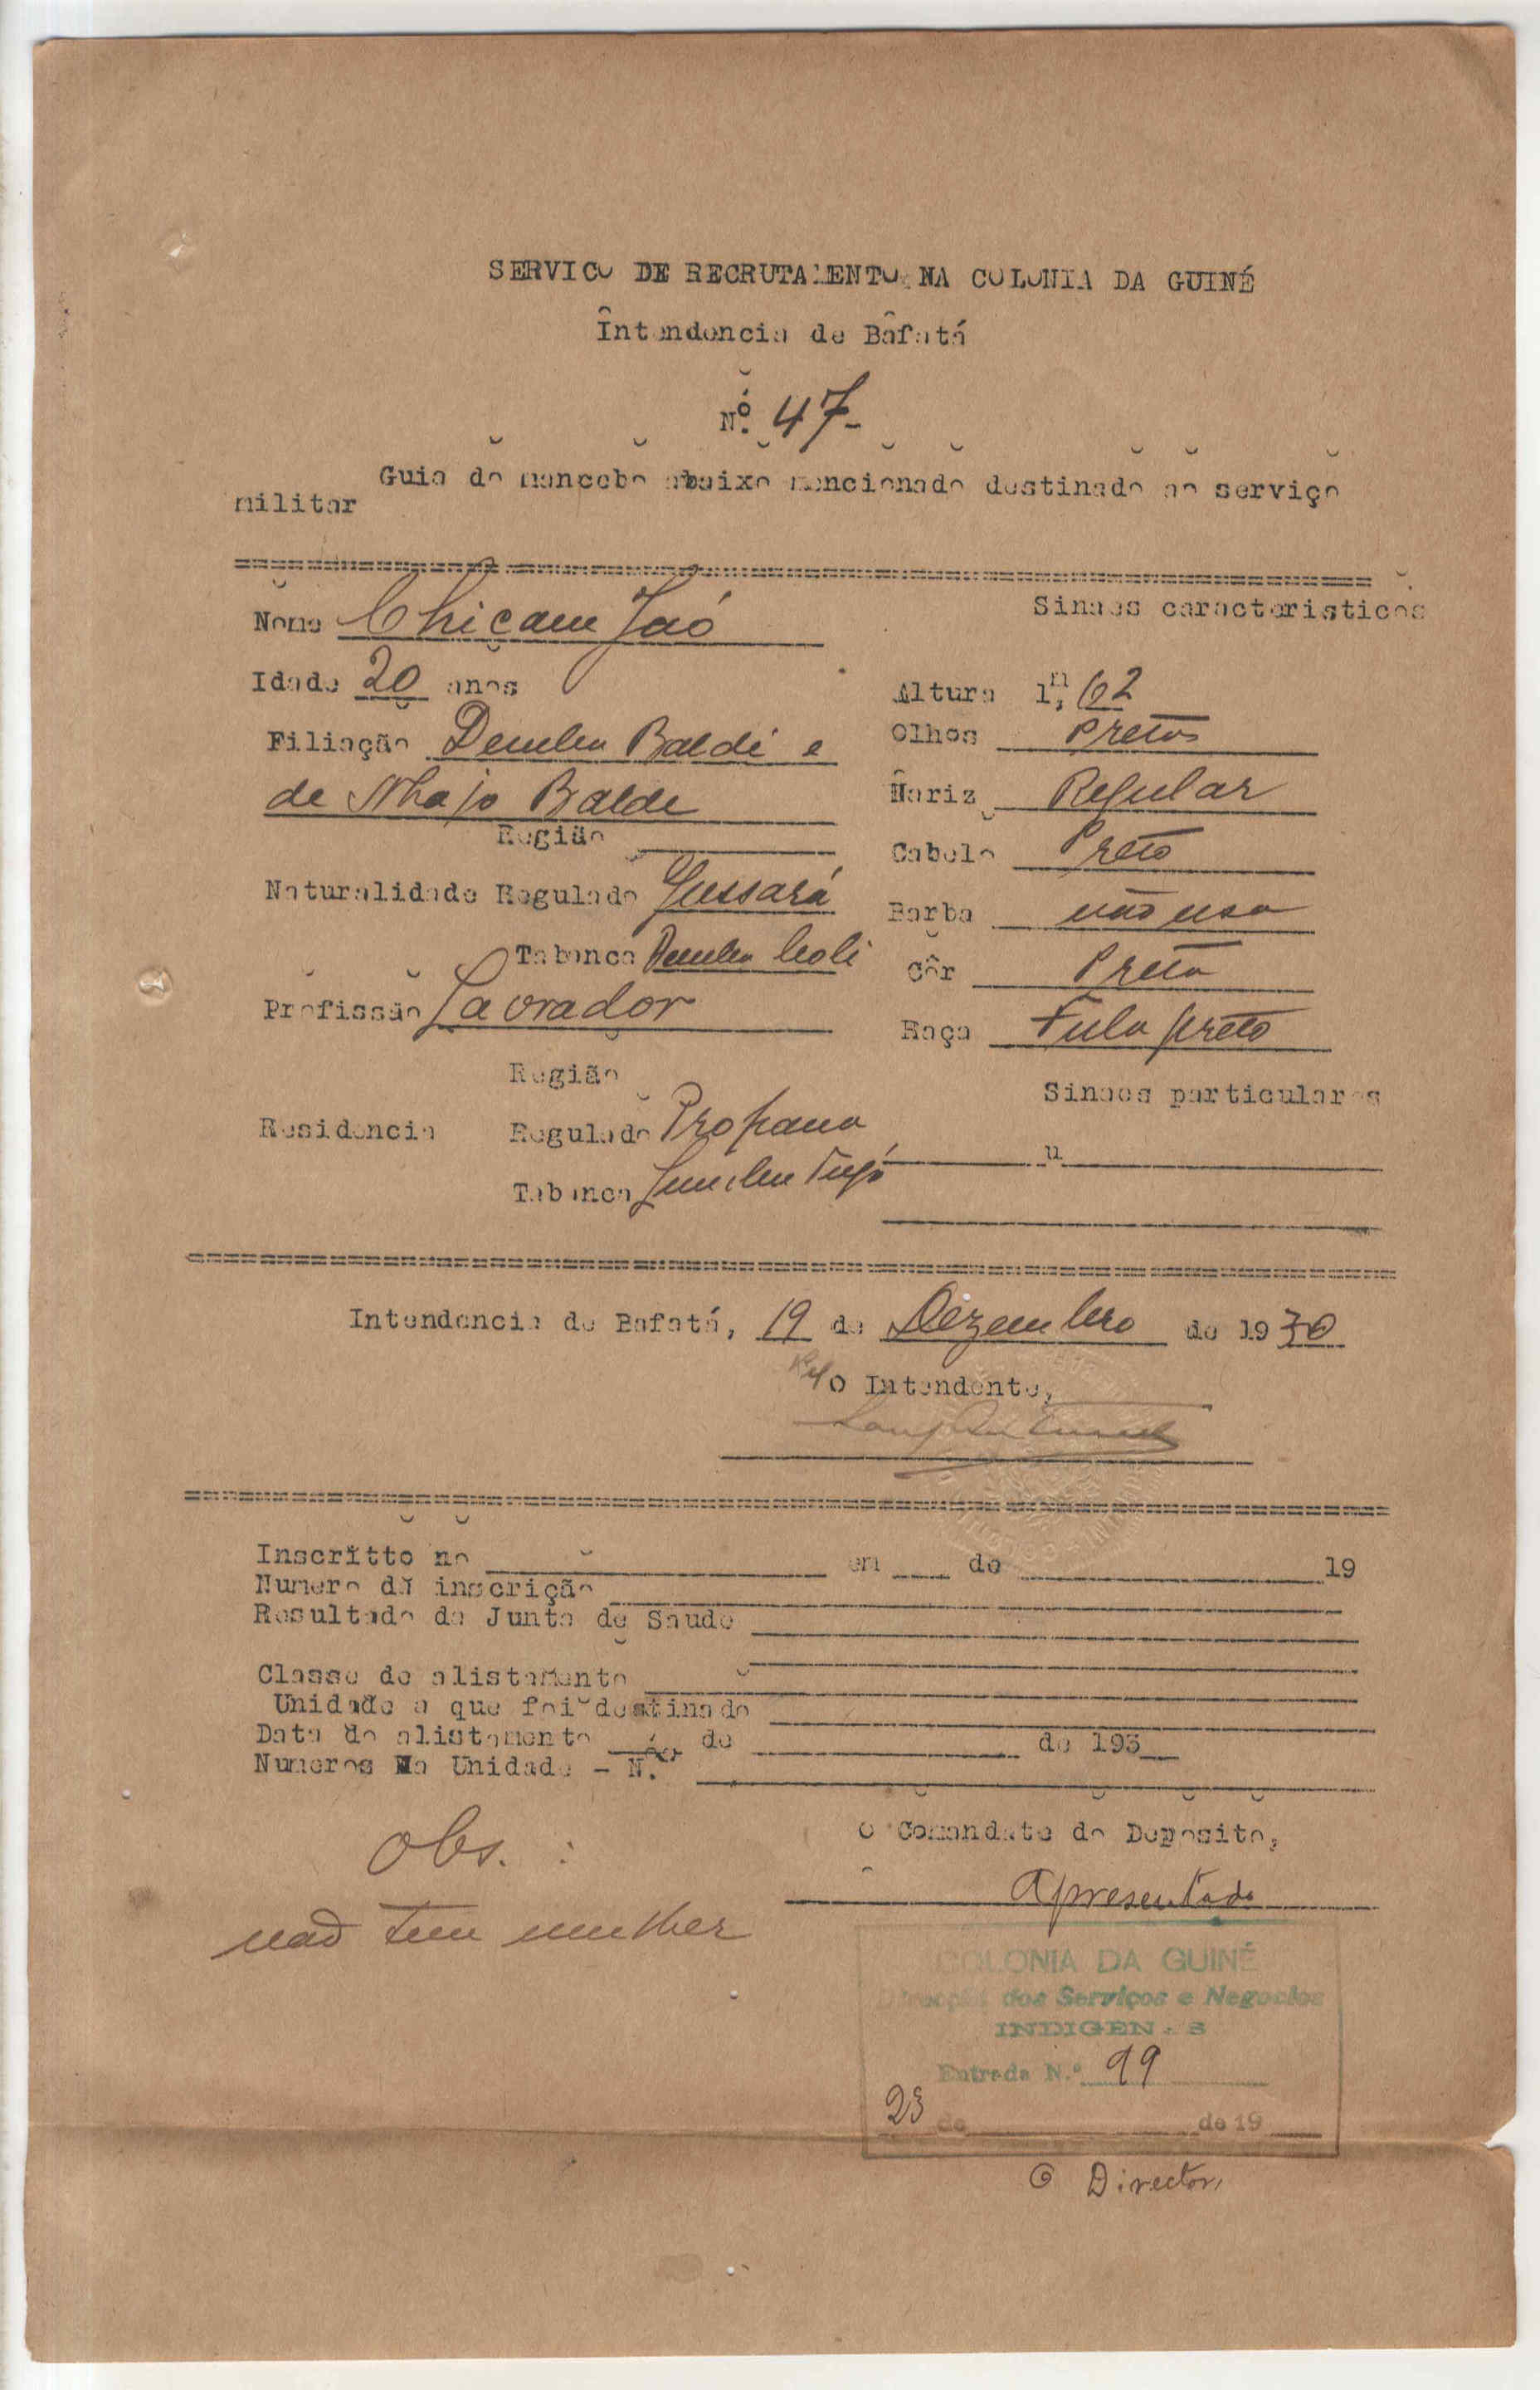 SERVICO DE RECRUTAMENTO NA COLONIA DA GUINÉ
Intendencia de Bafatá
Nº. 47-
Guia do mancebo abaixo mencionado destinado ao serviço
militar
Nome Chicam Jaó
Sinaes caracteristicos
Idade 20 anos
Altura 1,m 62
Filiação Demba Baldé e
Olhos Pretos
de Nhajo Balde
Nariz Regular
Região
Cabelo Preto
Naturalidade Regulado Gussará
Barba não usa
Tabanca Demba Coli
Côr Preta
Profissão Lavrador
Raça Fula preto
Região
Sinaes particulares
Residencia Regulado Propana
"
Tabanca
Intendencia de Bafatá, 19 de Dezembro de 1930
O Intendente,
Inscritto no em de 19
Numero da inscrição
Resultado da Junta de Saude
Classe do alistamento
Unidade a que foi destinado
Data do alistamento de de 193
Numeros Na Unidade - N.
Obs. :
O Comandate do Deposito,
não tem mulher
Apresentado
COLONIA DA GUINÉ
Direcção dos Serviços e Negocios
INDIGENAS
Entrada N.º 99
23 de de 19
O Director,